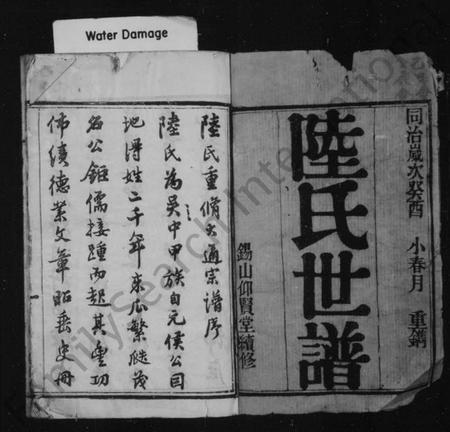 Water Damage
同治歲次癸酉 小春月 重鐫
陸氏世譜
錫山仰賢堂續修
陸氏重脩大通宗譜序
陸氏為吳中甲族自元侯公因
地得姓二千年來瓜繁瓞茂
名公鉅儒接踵而起其豐功
偉績德業文章昭垂史冊
FamilySearch International